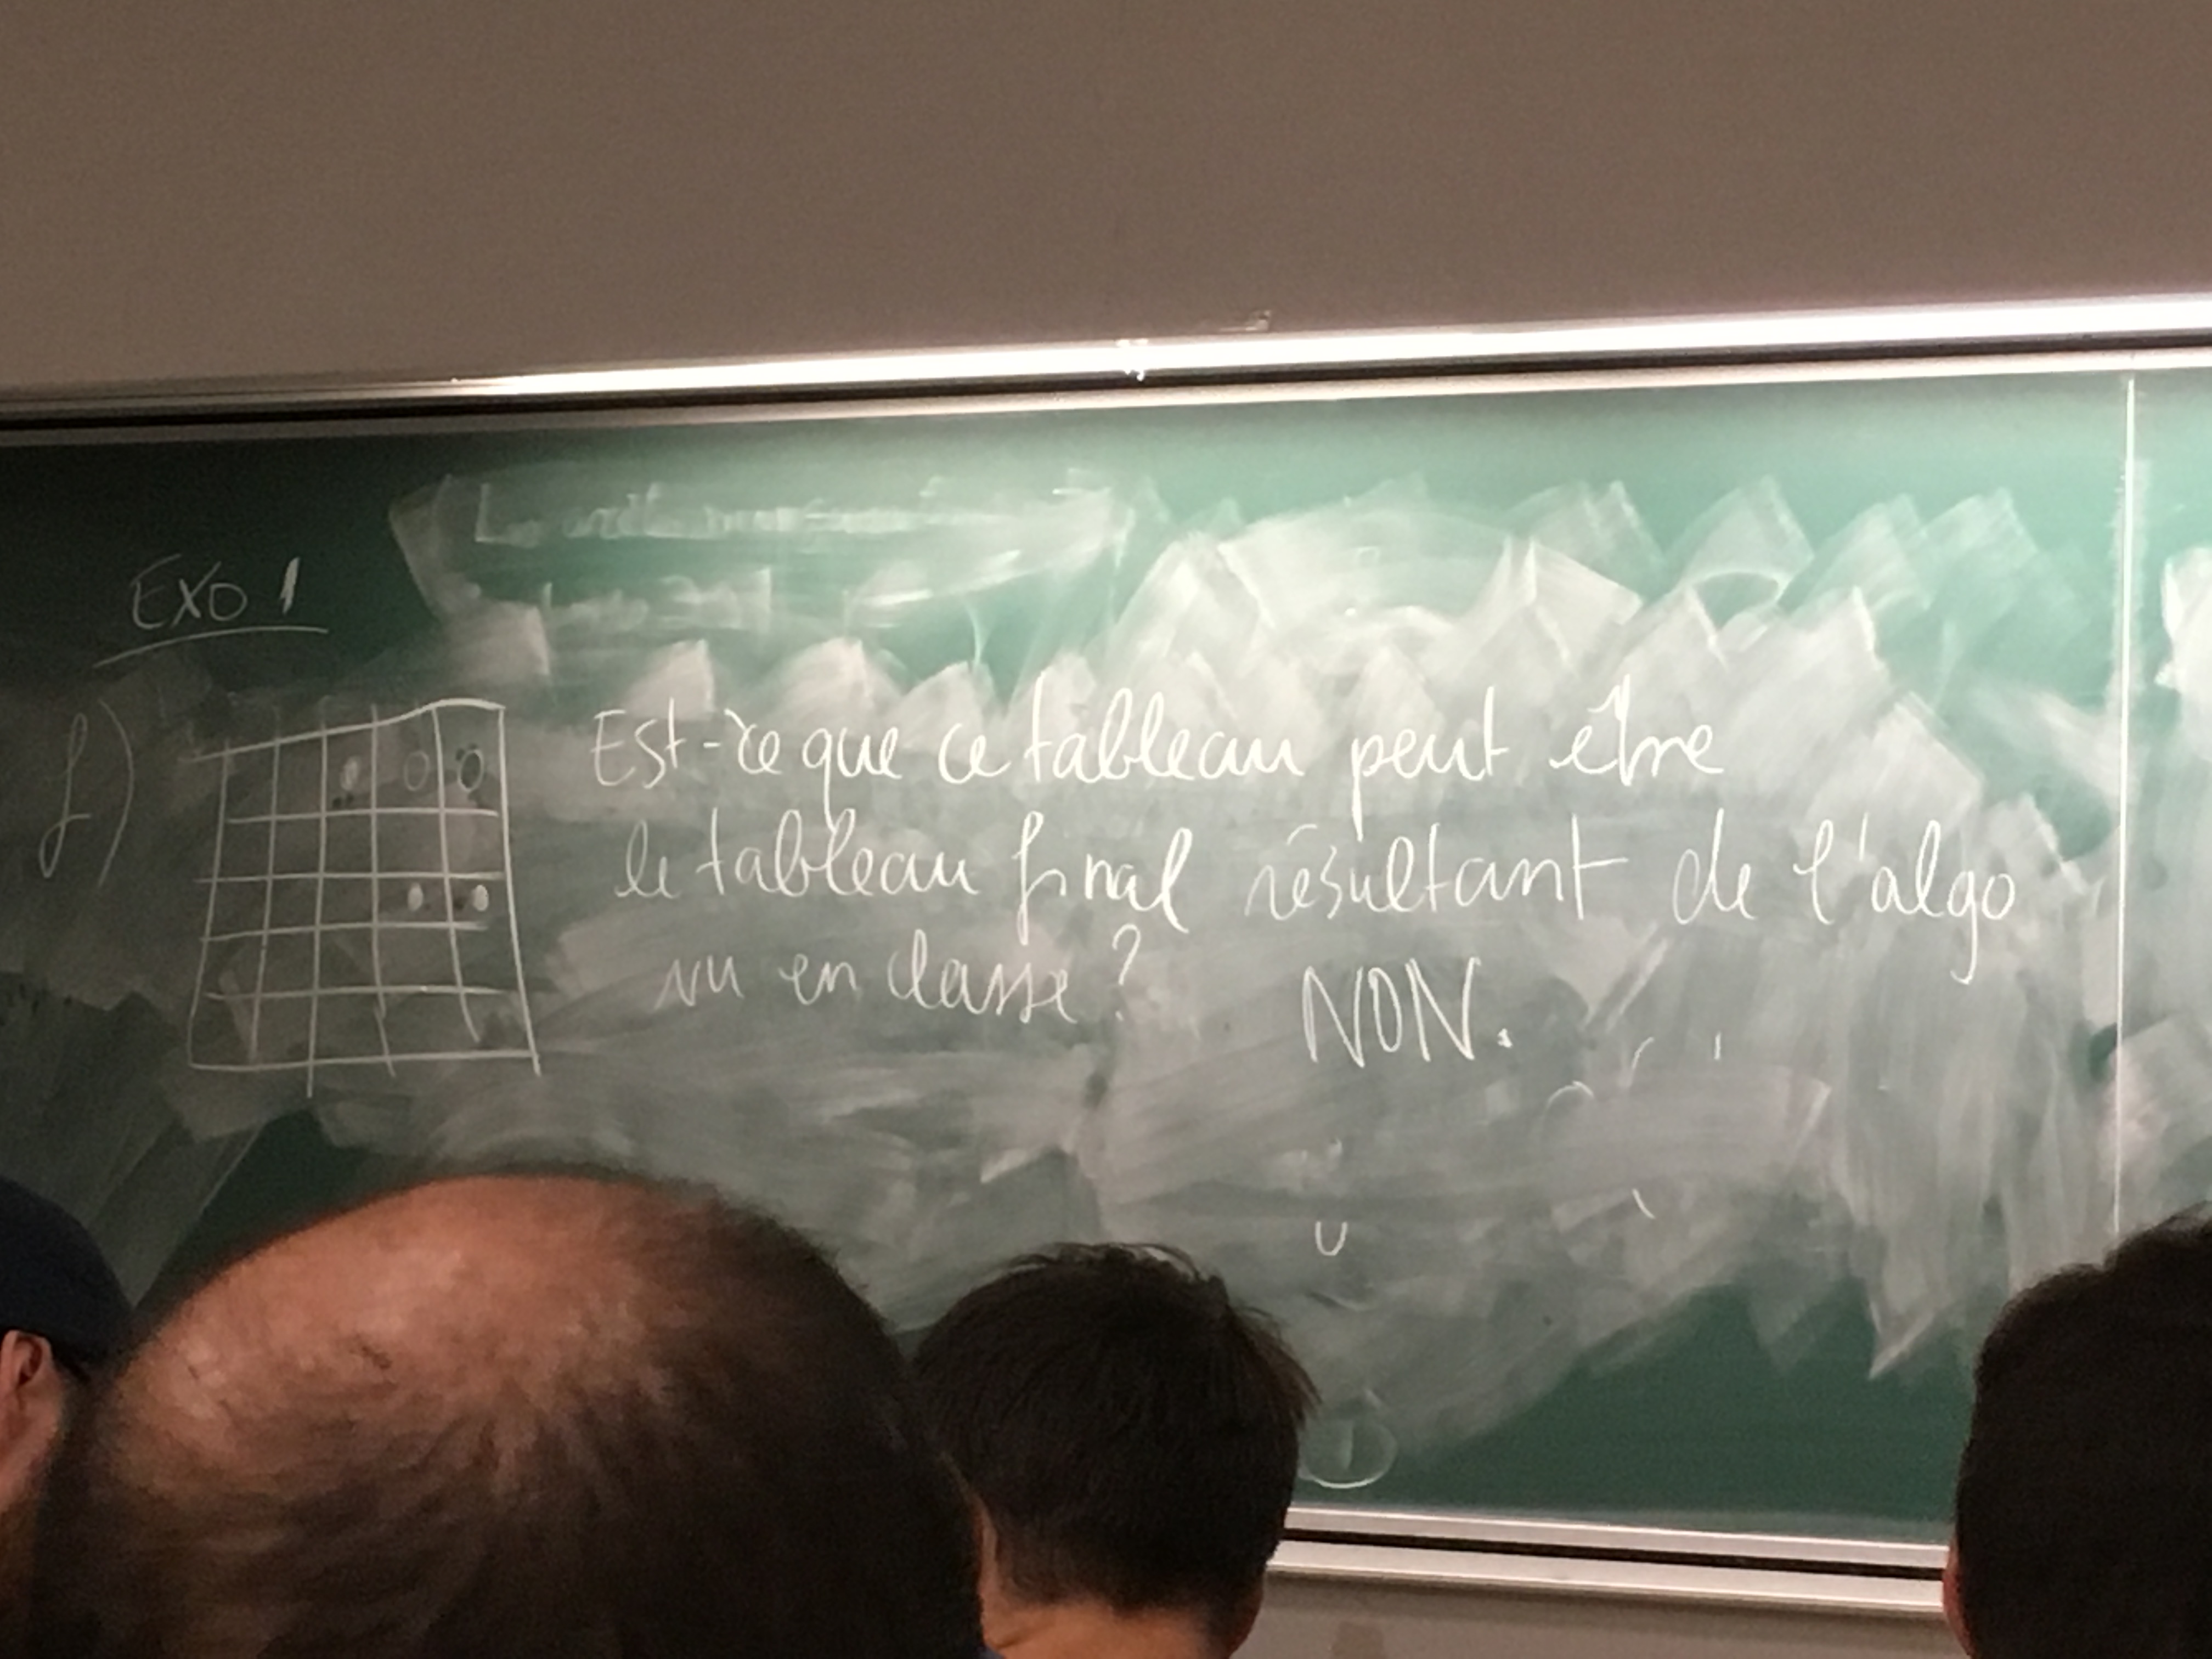 EXO 1
f)
Est-ce que ce tableau peut être
le tableau final résultant de l'algo
vu en classe ? NON.